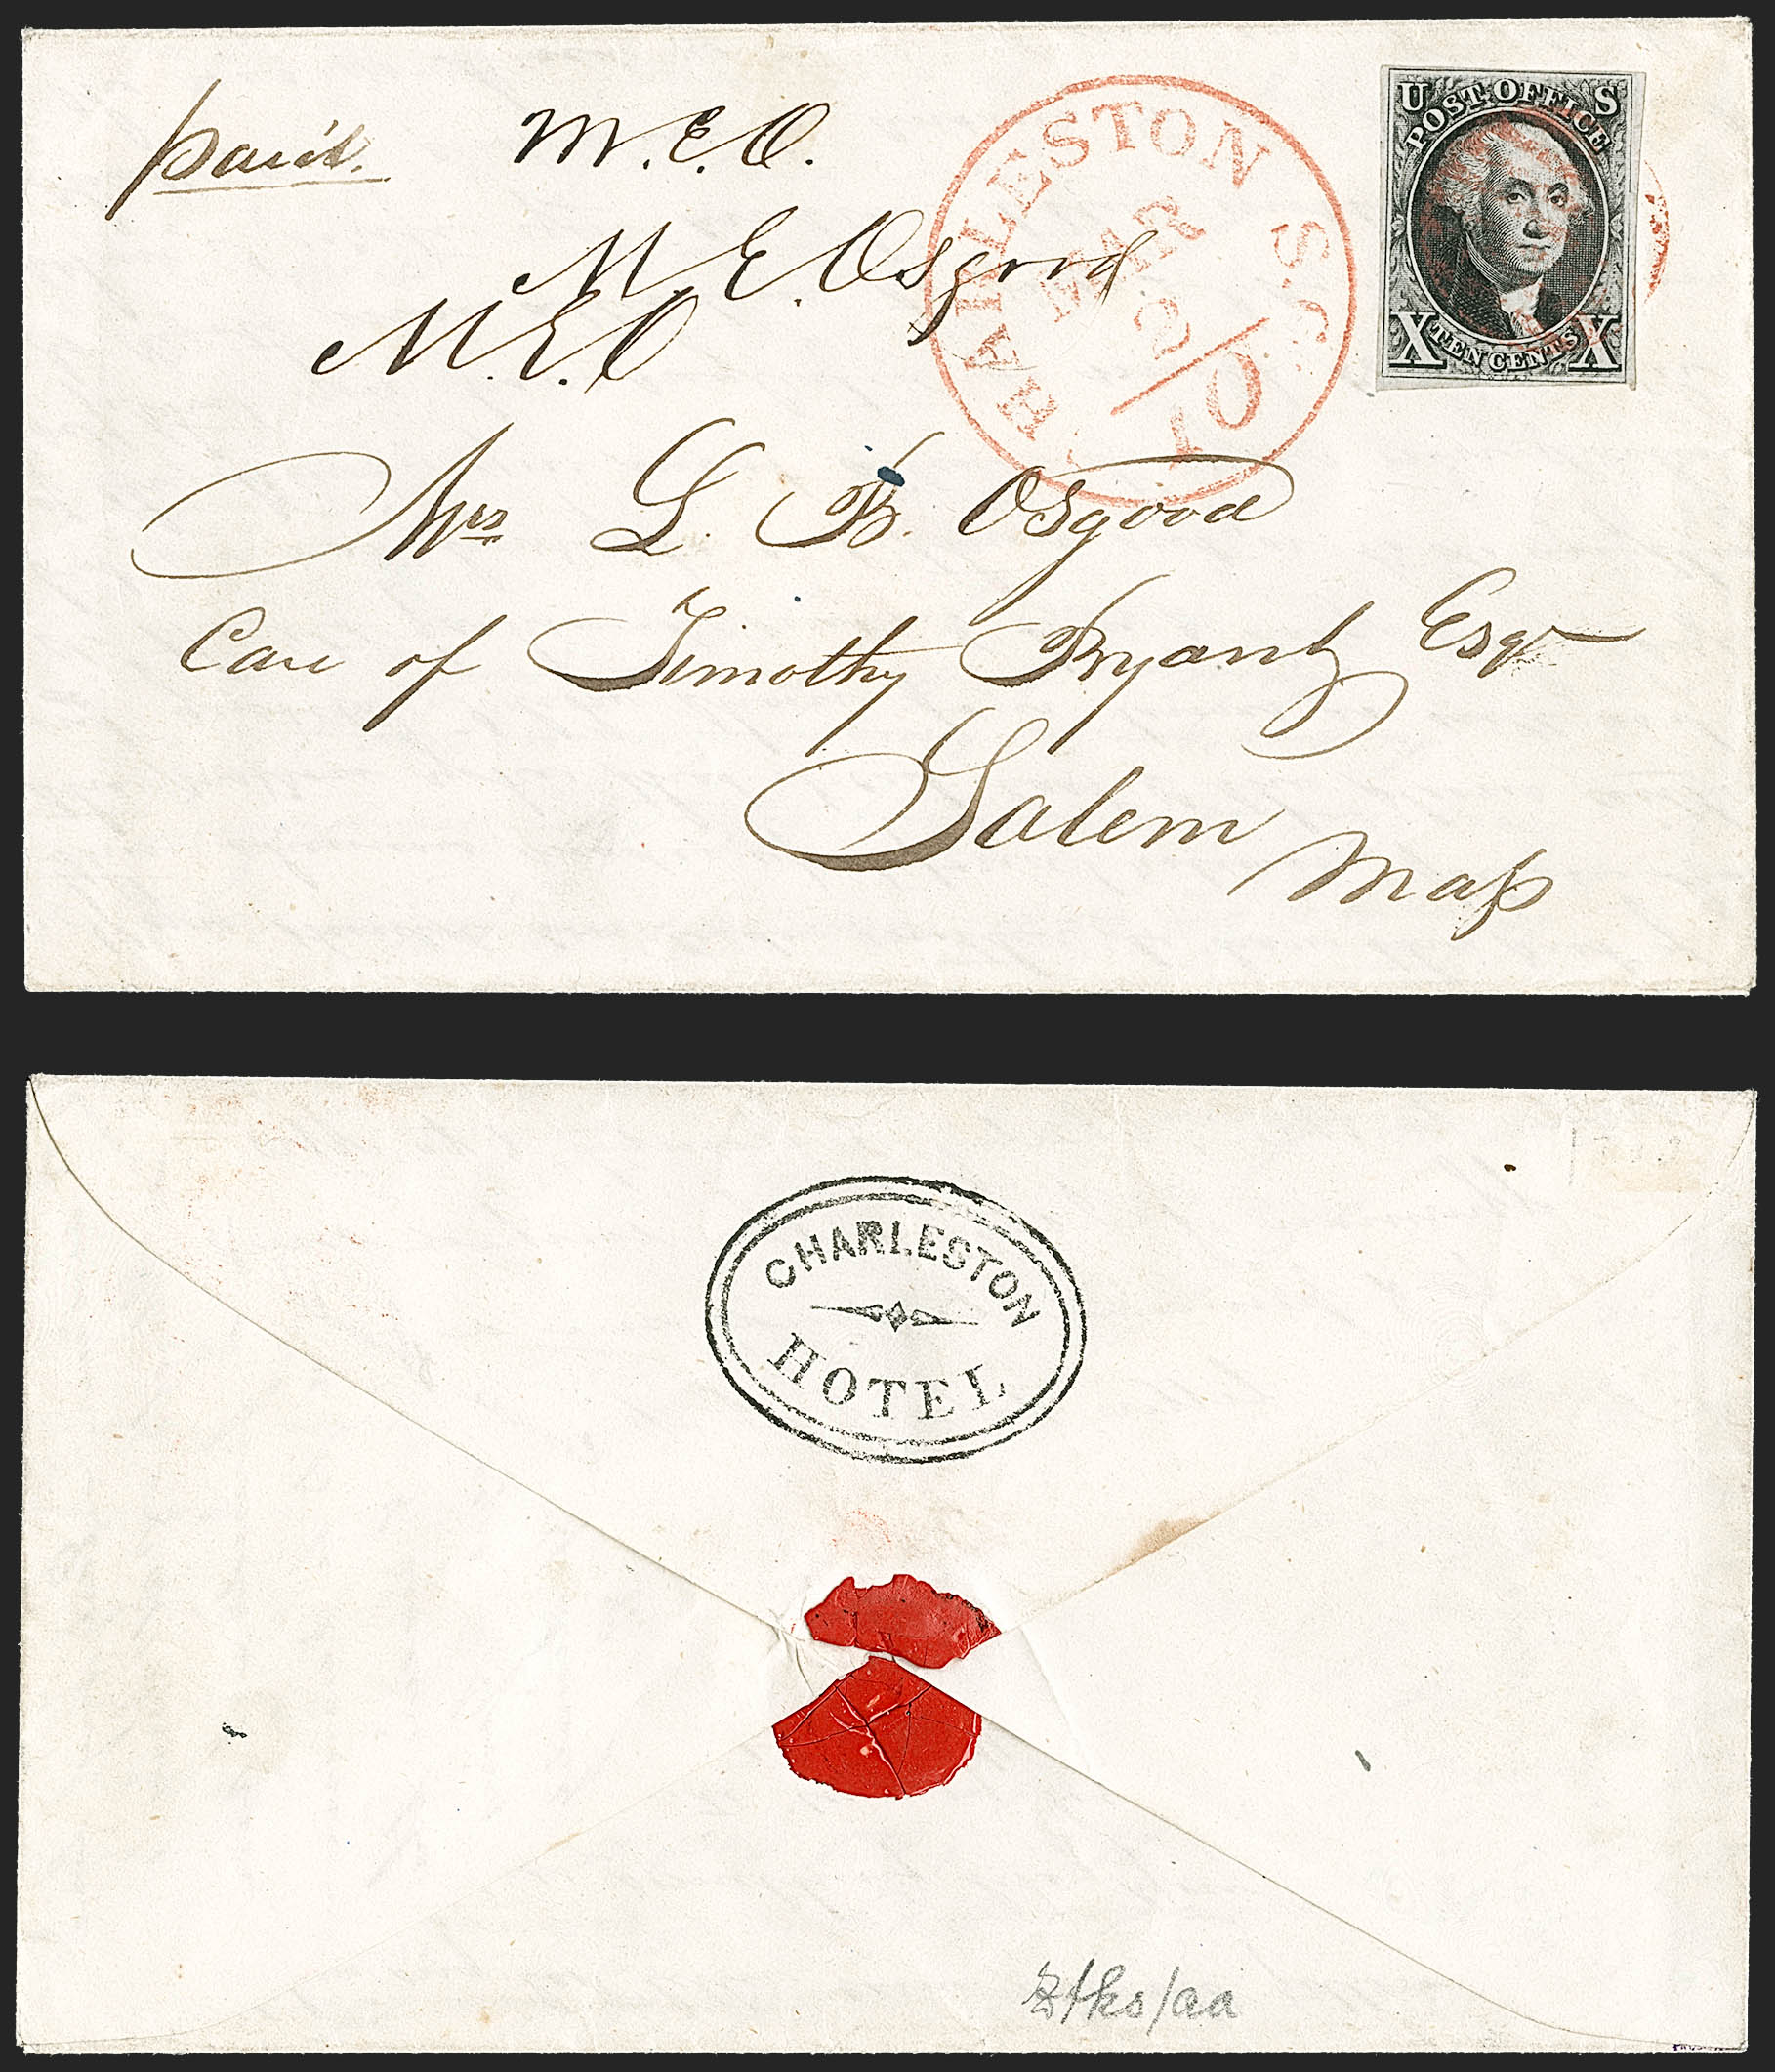 paid. M.E.O.
M. E. Osgood
M.E.O
CHARLESTON S.C.
MAR
2
10
U S
POST OFFICE
X TEN CENTS X
Mrs L. B. Osgood
Care of Timothy Bryant Esqr
Salem
Mass
CHARLESTON
HOTEL